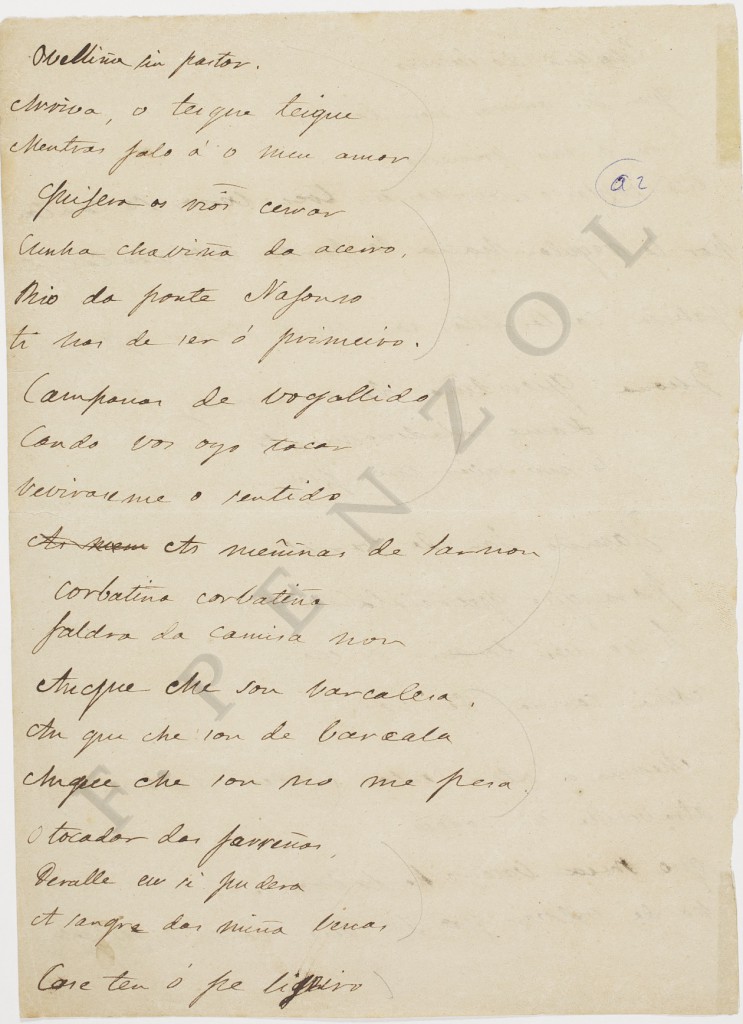 Ovelliña sin pastor.
Arriva, o teigue teigue
Mentras falo á o meu amor
a 2
Quijera os rios cerrar
Cunha chaviña da aceiro,
Rio da ponte Nafonso
ti has de ser ó primeiro.
Campanas de Bogallido
Cando vos oyo tocar
Revivaseme o sentido
As mem As meñinas de Sarnon
Corbatiña corbatiña
faldra da camisa non
Aucque che son barcalesa.
An que che son de barcala
Anque che son no me pesa.
O tocador das farreñas,
Deralle eu si pudera
A sangre das miña benas
Case ten ó pe ligeiro
F. PENZOL